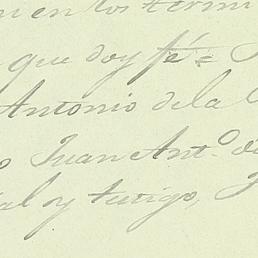 en los termi
que doy fé =
Antonio de la
Juan Ant.º de
al y testigo,